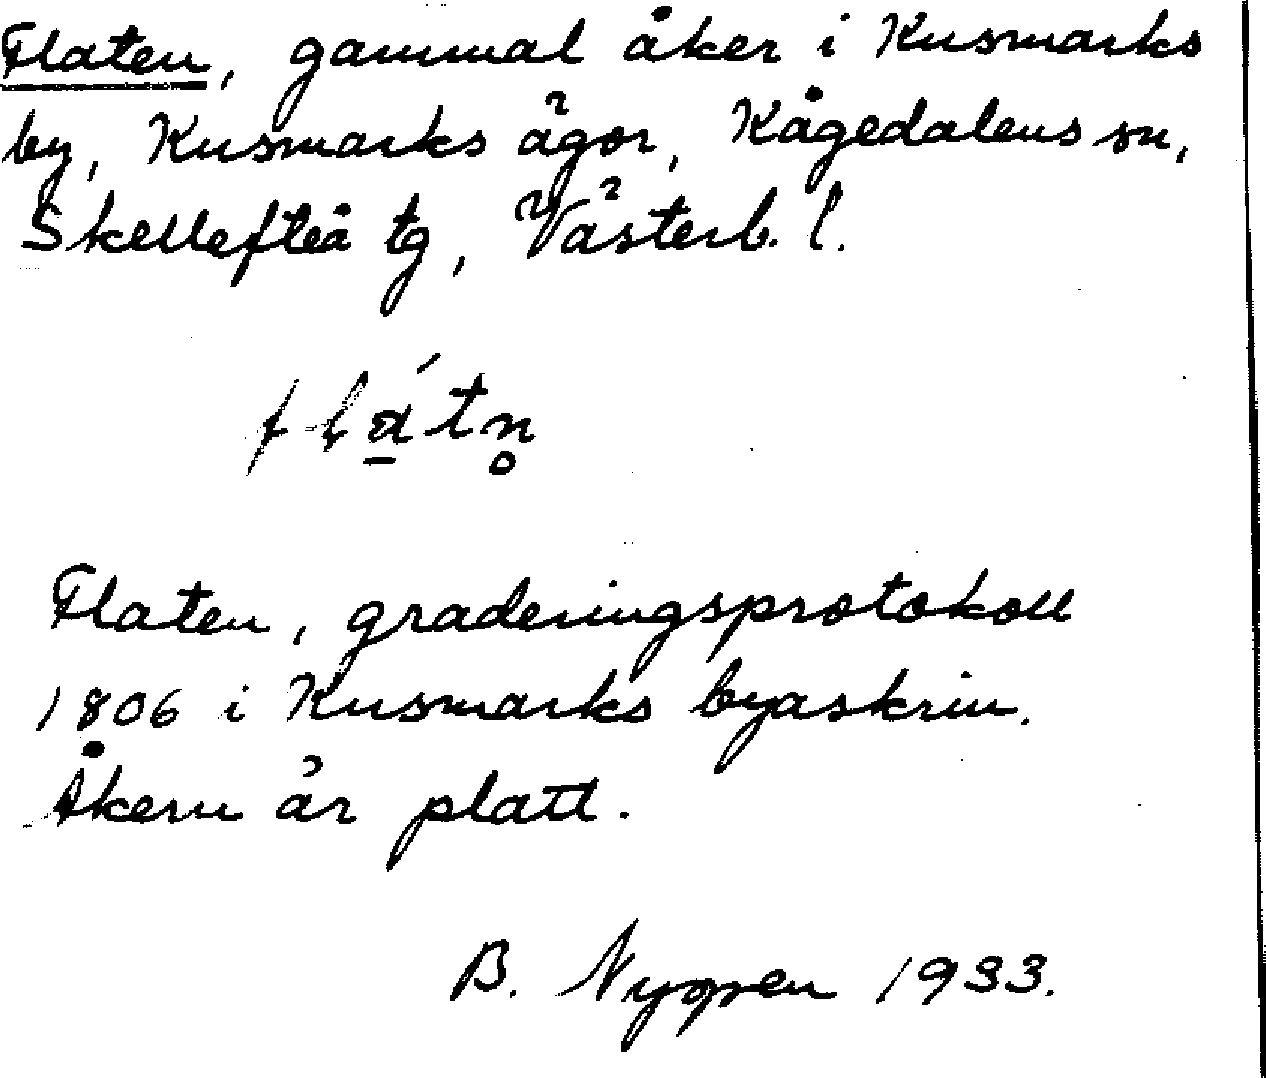 Flaten, gammal åker i Kusmarks
by, Kusmarks ägor, Kågedalens sn,
Skellefteå tg, Västerb. l.
flά̠tn̥
Flaten, graderingsprotokoll
1806 i Kusmarks byaskrin.
Åkern är platt.
B. 1933.